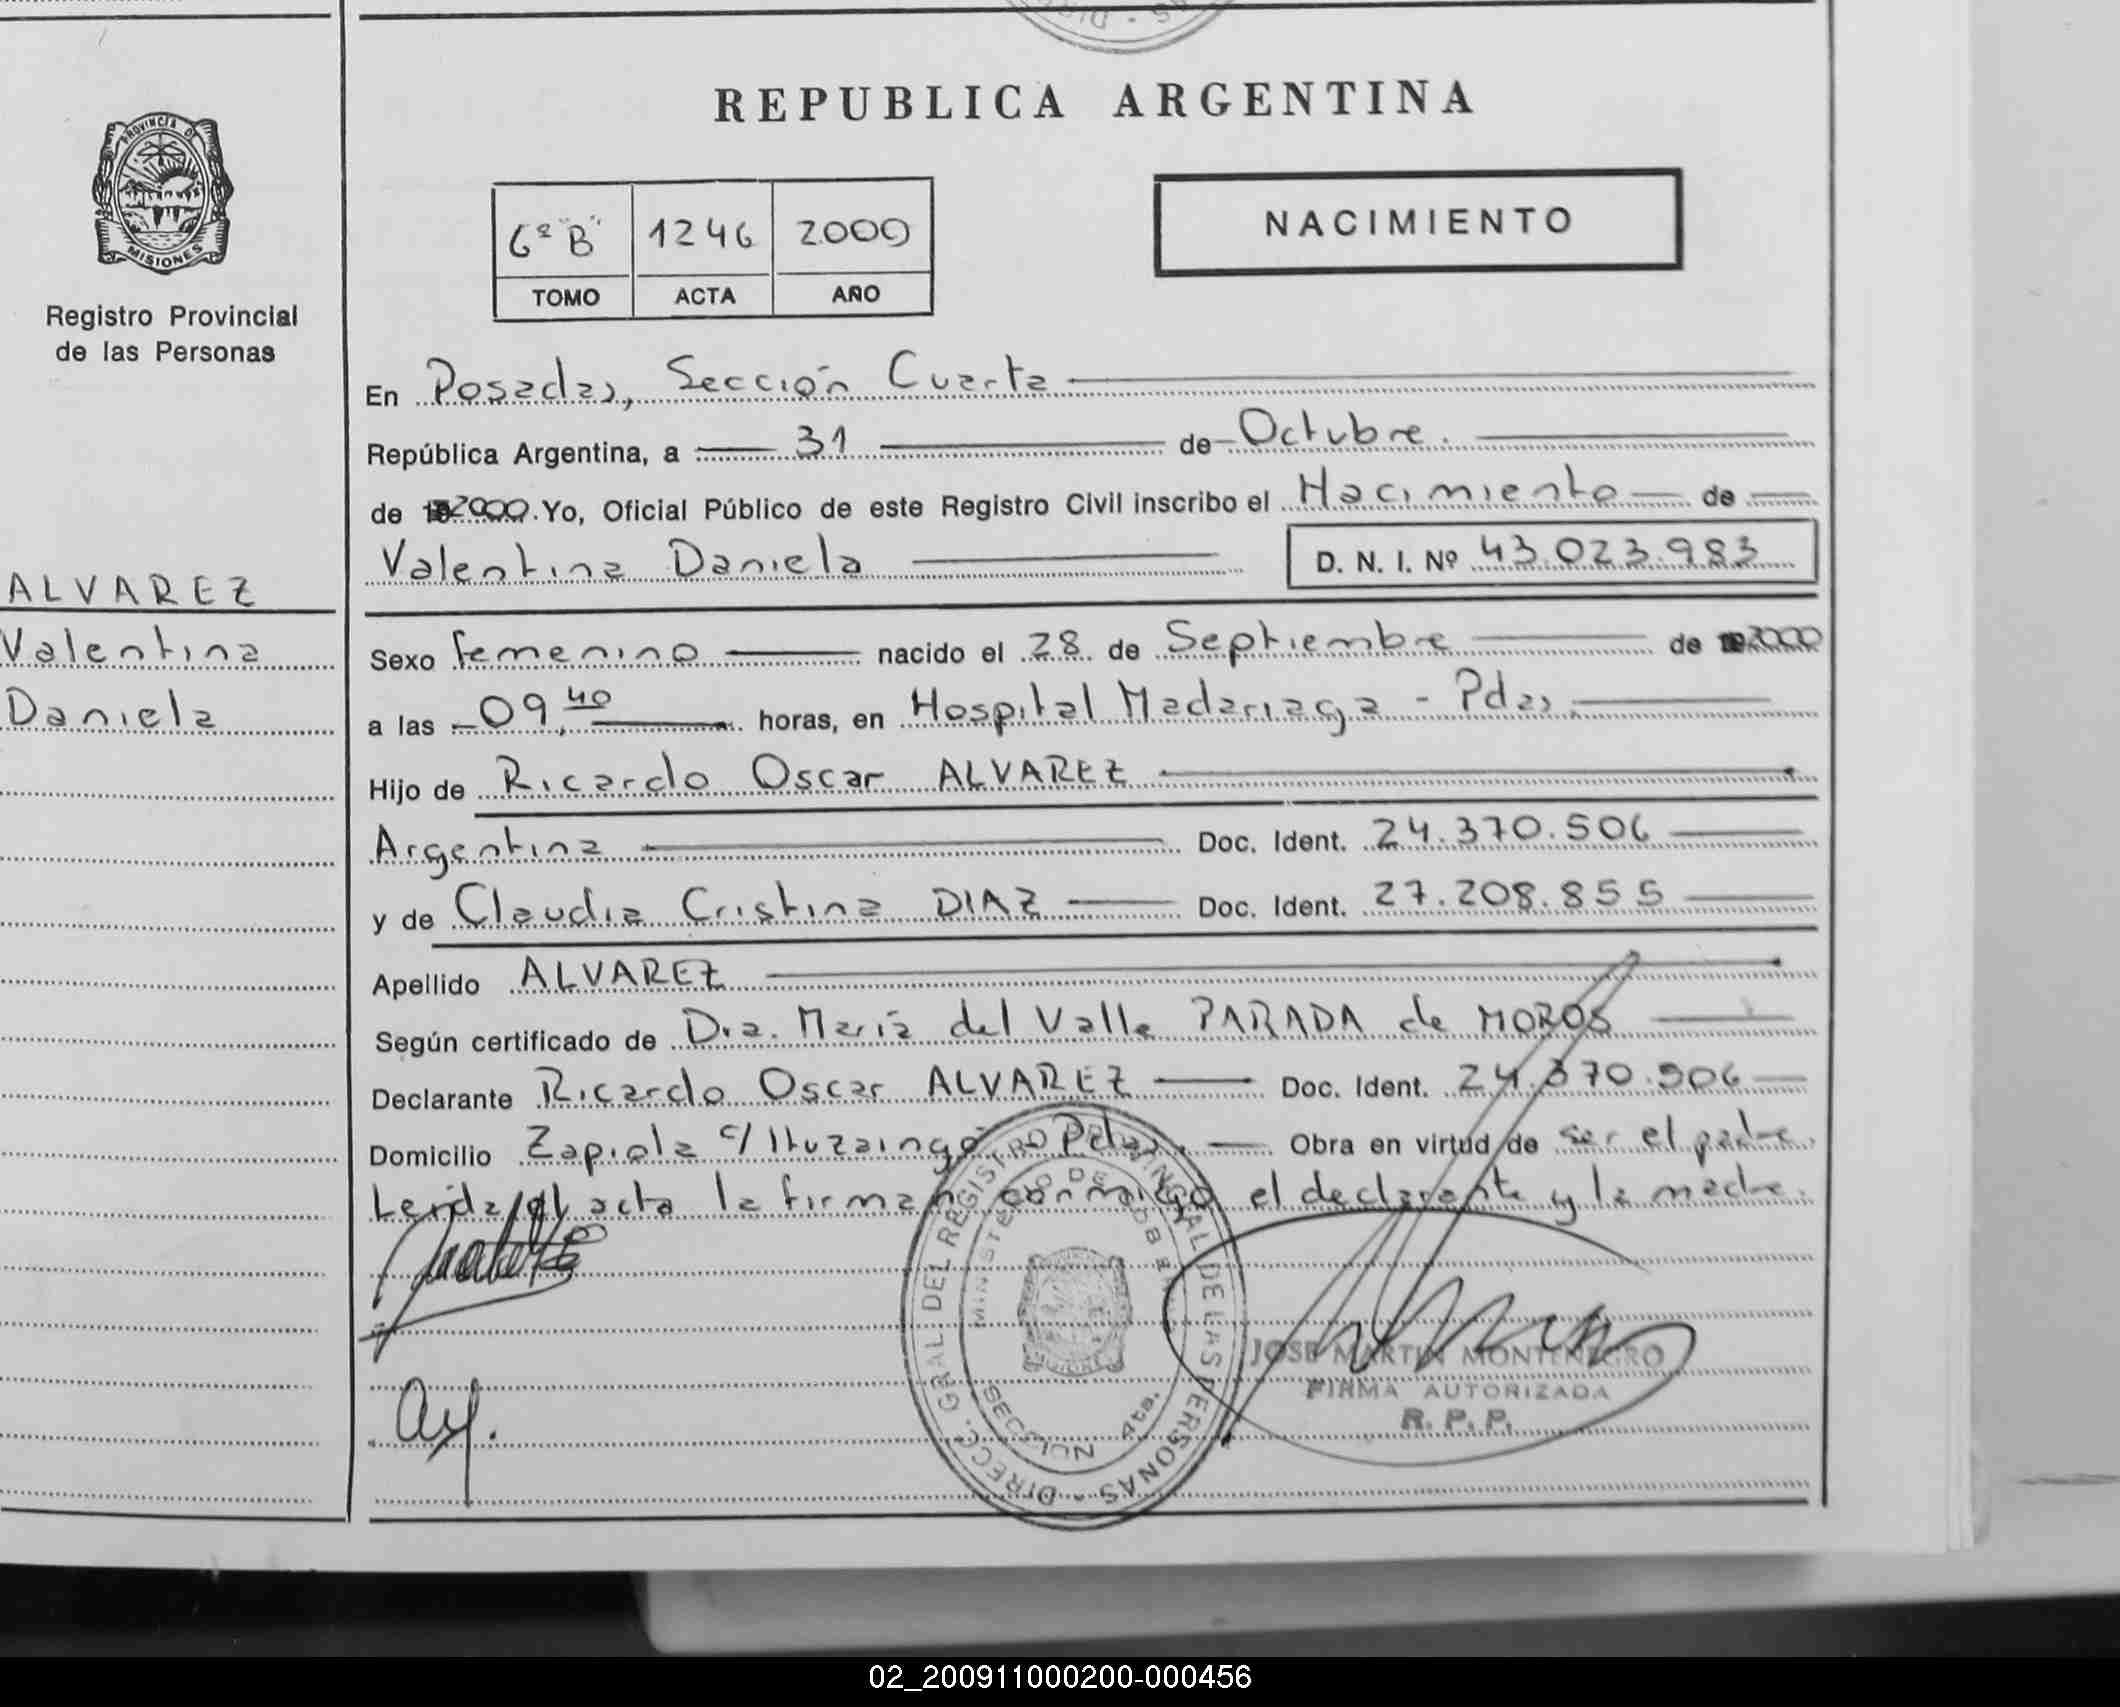 DIR · S
REPUBLICA ARGENTINA
PROVINCIA DE
MISIONES
Registro Provincial
de las Personas
6º "B" 1246 2000
TOMO ACTA AÑO
NACIMIENTO
En Posadas, Sección Cuarta
República Argentina, a 31 de Octubre.
de 2000. Yo, Oficial Público de este Registro Civil inscribo el Nacimiento de
Valentina Daniela D. N. I. Nº 43.023.983
ALVAREZ
Valentina
Daniela
Sexo femenino nacido el 28 de Septiembre de 2000
a las 09,40 horas, en Hospital Madariaga - Pdas.
Hijo de Ricardo Oscar ALVAREZ
Argentina Doc. Ident. 24.370.506
y de Claudia Cristina DIAZ Doc. Ident. 27.208.855
Apellido ALVAREZ
Según certificado de Dra. María del Valle PARADA de MOROS
Declarante Ricardo Oscar ALVAREZ Doc. Ident. 24.370.506
Domicilio Zapiola c/ Ituzaingó Pdas. Obra en virtud de ser el padre.
Leida el acta la firman conmigo el declarante y la madre.
DIRECC. GRAL. DEL REGISTRO PROVINCIAL DE LAS PERSONAS -
MINISTERIO DE GOBIE
MISIONES
SECCION 4ta.
JOSE MARTIN MONTENEGRO
FIRMA AUTORIZADA
R. P. P.
02_200911000200-000456